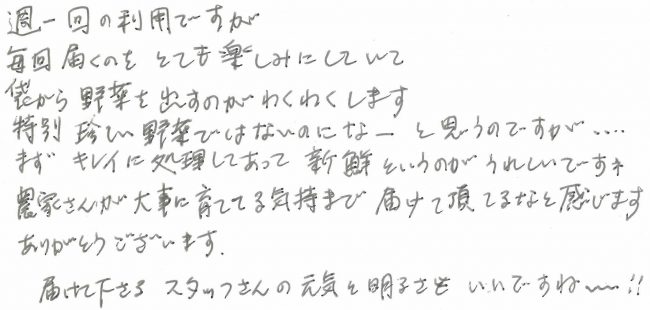 週一回の利用ですが
毎回届くのを とても楽しみにしていて
袋から 野菜を出すのがわくわくします
特別 珍しい野菜ではないのになー と思うのですが....
まず キレイに処理してあって 新鮮というのがうれしいです♪
農家さんが大事に育ててる気持まで 届けて頂てるなと感じます
ありがとうございます.
届けて下さる スタッフさんの元気と明るさも いいですね〜!!